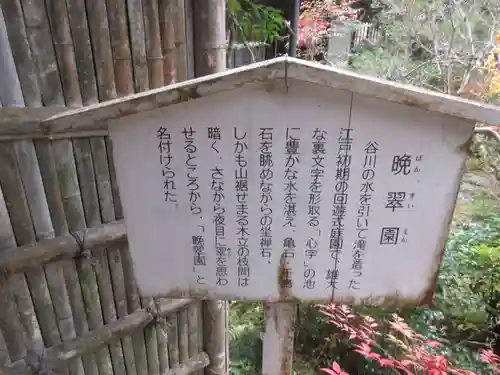 晩翠園
ばんすいえん
谷川の水を引いて滝を造った
江戸初期の回遊式庭園で、雄大
な裏文字を形取る「心字」の池
に豊かな水を湛え、亀石、
石を眺めながらの坐禅石、
しかも山裾せまる木立の枝間
暗く、さながら夜目に翠を思わ
せるところから、「晩翠園」と
名付けられた。